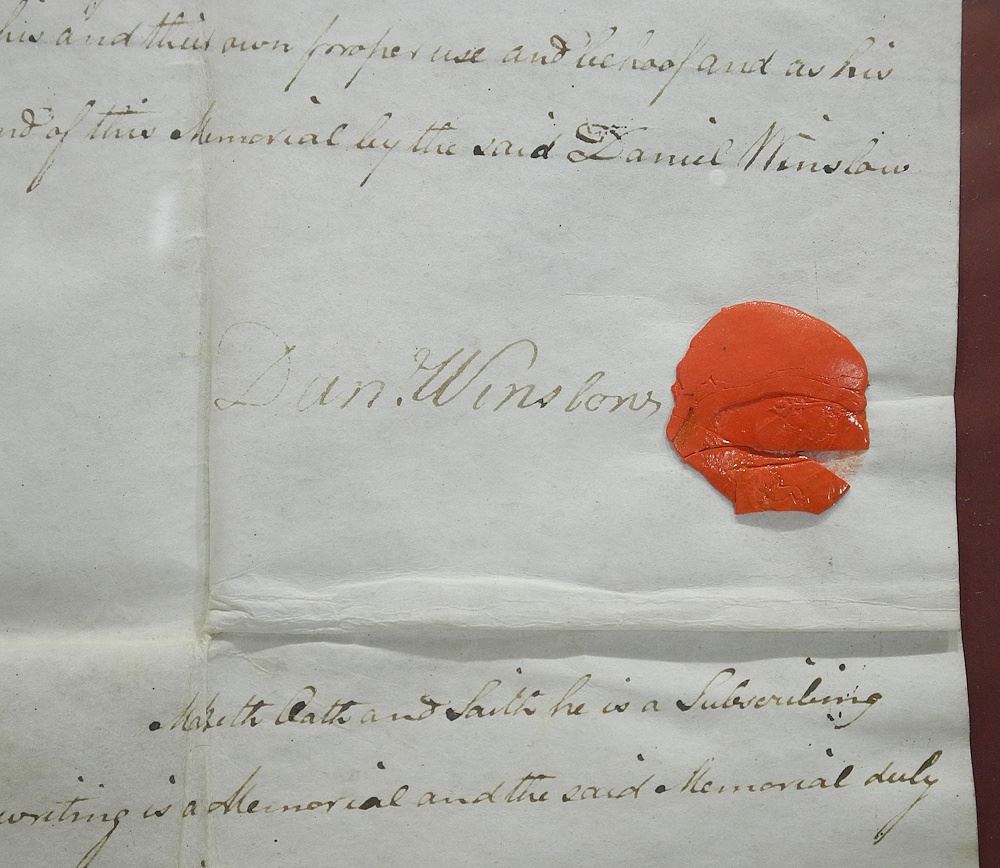 his and their own proper use and behoof and as his
nd of this Memorial by the said Daniel Winslow
Dan. Winslow
Maketh Oath and Saith he is a Subscribing
writing is a Memorial and the said Memorial duly